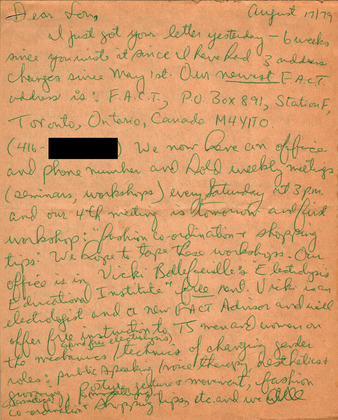 Dear Lou,
August 17/79
I just got your letter yesterday - 6 weeks
since you wrote it since I have had 3 address
changes since May 1st. Our newest F.A.C.T.
address is: F.A.C.T., P.O. Box 891, Station F,
Toronto, Ontario, Canada M4Y1T0
(416- ) We now have an office
and phone number and hold weekly meetings
(seminars, workshops) every Saturday at 3pm
and our 4th meeting is tomorrow and first
workshop: "fashion co-ordination & shopping
tips." We hope to tape these workshops. Our
office is in Vicki "Electolysis
Educational Institute" free rent. Vicki is an
electrolgist and a new FACT Advisor and will
offer free instruction to TS men and women on
(plus free electrolysis)
the mechanics/technics of changing gender
roles: public speaking (voice therapy), aesthetics &
grooming, posture, gesture & movement, fashion
co-ordination & shopping tips etc. and we